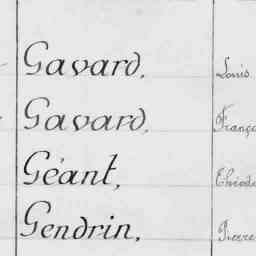 Gavard, Louis
Gavard, Franço
Géant, Théodo
Gendrin, Pierre